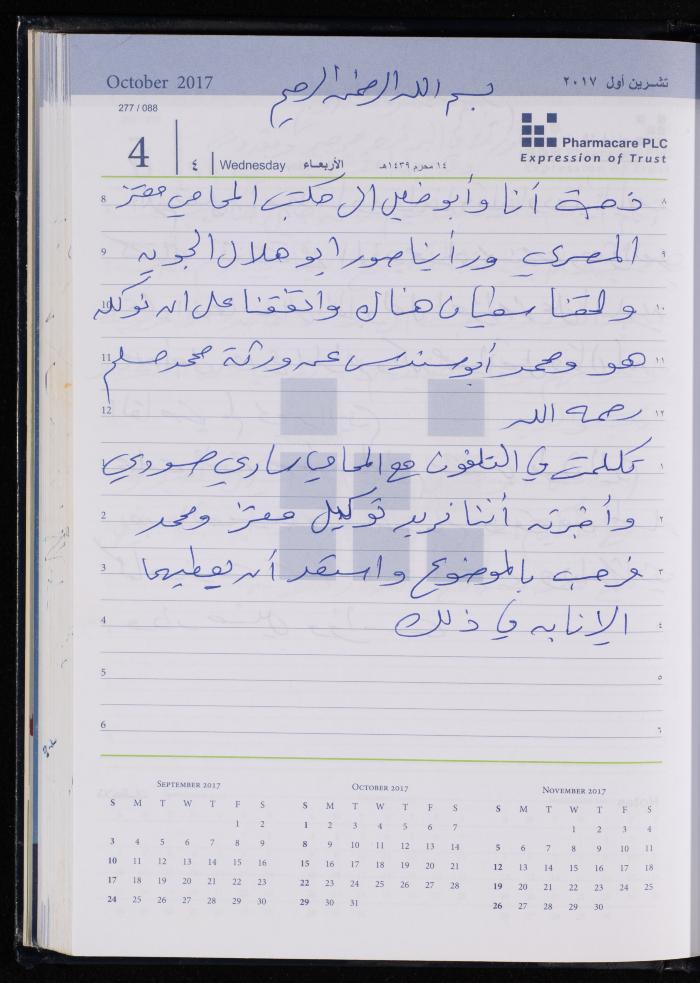 October 2017
تشرين أول ٢٠١٧
بسم الله الرحمن الرحيم
277 / 088
4
٤
Wednesday
الأربعاء
١٤ محرم ١٤٣٩هـ
Pharmacare PLC
Expression of Trust
8 ذهبت أنا وأبو إلى مكتب المحامي معتز ٨
9 المصري ورأينا صور أبو هلال ٩
10 ولحقنا سفيان هناك واتفقنا على ان نوكله ١٠
11 هو ومحمد أبو سندس عن ورثة محمد مسلم ١١
12 رحمه الله ١٢
1 تكلمت في التلفون مع المحامي ١
2 وأخبرته أننا نريد توكيل معتز ومحمد ٢
3 فرحب بالموضوع واستعد أن يعطيهما ٣
4 الإنابه في ذلك ٤
5 ٥
6 ٦
September 2017
S M T W T F S
1 2
3 4 5 6 7 8 9
10 11 12 13 14 15 16
17 18 19 20 21 22 23
24 25 26 27 28 29 30
October 2017
S M T W T F S
1 2 3 4 5 6 7
8 9 10 11 12 13 14
15 16 17 18 19 20 21
22 23 24 25 26 27 28
29 30 31
November 2017
S M T W T F S
1 2 3 4
5 6 7 8 9 10 11
12 13 14 15 16 17 18
19 20 21 22 23 24 25
26 27 28 29 30